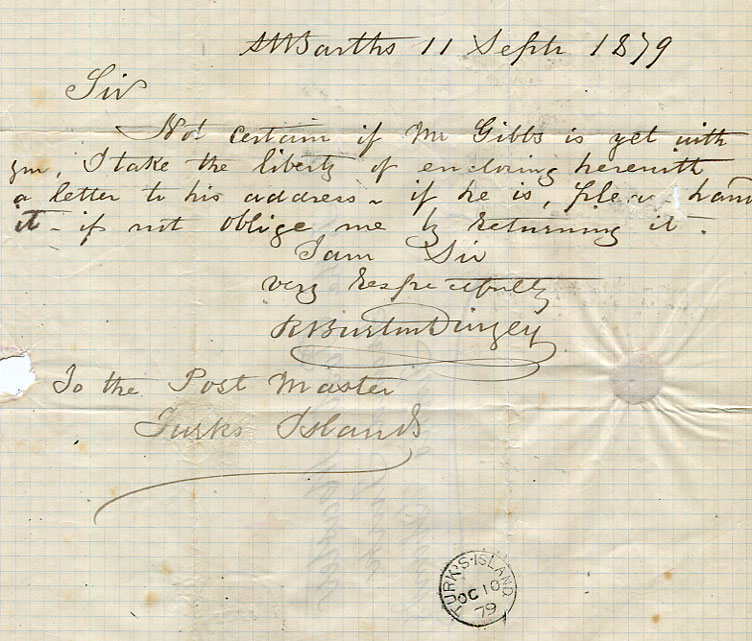 St Barths 11 Septr 1879
Sir
Not certain if Mr Gibbs is yet with
you, I take the liberty of enclosing herewith
a letter to his address - if he is, please hand
it - if not oblige me by returning it.
I am Sir
very Respectfully
R Burton Dinzey
To the Post Master
Turks Islands
TURK'S-ISLAND
OC 10
79